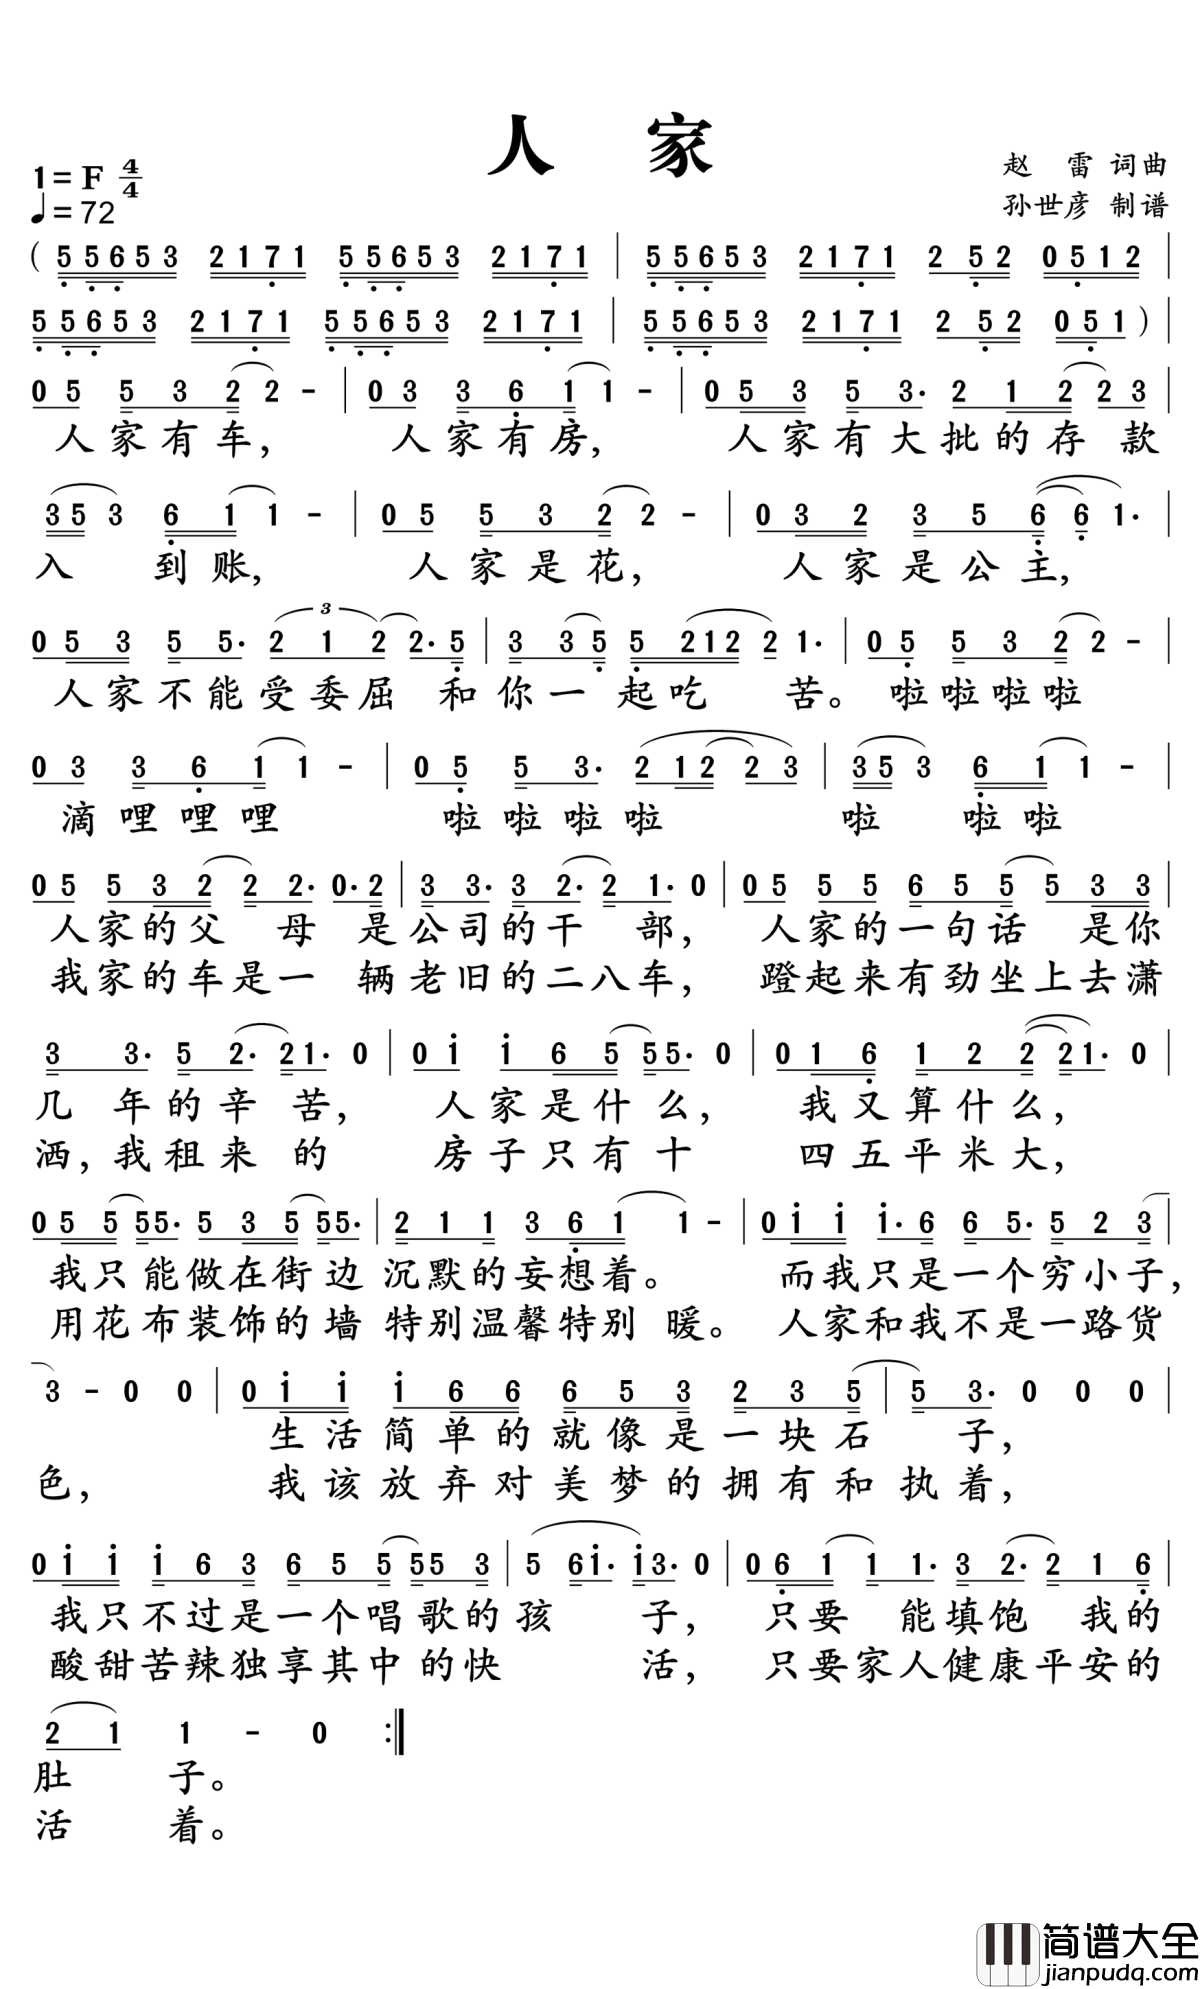 人 家
赵 雷 词曲
孙世彦 制谱
1= F 4/4
♩= 72
( 5 5 6 5 3 2 1 7 1 5 5 6 5 3 2 1 7 1 | 5 5 6 5 3 2 1 7 1 2 5 2 0 5 1 2 |
5 5 6 5 3 2 1 7 1 5 5 6 5 3 2 1 7 1 | 5 5 6 5 3 2 1 7 1 2 5 2 0 5 1 ) |
0 5 5 3 2 2 - | 0 3 3 6 1 1 - | 0 5 3 5 3· 2 1 2 2 3 |
人家有车, 人家有房, 人家有大批的存 款
3 5 3 6 1 1 - | 0 5 5 3 2 2 - | 0 3 2 3 5 6 6 1· |
入 到账, 人家是花, 人家是公主,
0 5 3 5 5· 2 1 2 2· 5 | 3 3 5 5· 2 1 2 2 1· | 0 5 5 3 2 2 - |
3
人家不能受委屈 和你一 起吃 苦。 啦啦啦啦
0 3 3 6 1 1 - | 0 5 5 3· 2 1 2 2 3 | 3 5 3 6 1 1 - |
滴哩哩哩 啦啦啦啦 啦 啦啦
0 5 5 3 2 2 2· 0· 2 | 3 3· 3 2· 2 1· 0 | 0 5 5 5 6 5 5 5 3 3 |
人家的父 母 是公司的干 部, 人家的一句话 是你
我家的车是一 辆老旧的二八车, 蹬起来有劲坐上去潇
3 3· 5 2· 2 1· 0 | 0 i i 6 5 5 5· 0 | 0 1 6 1 2 2 2 1· 0 |
几 年的辛 苦, 人家是什么, 我又算什么,
洒,我租来 的 房子只有十 四五平米大,
0 5 5 5 5· 5 3 5 5 5· | 2 1 1 3 6 1 1 - | 0 i i i· 6 6 5· 5 2 3 |
我只能做在街边 沉默的妄想着。 而我只是一个穷小子,
用花布装饰的墙 特别温馨特别 暖。 人家和我不是一路货
3 - 0 0 | 0 i i i 6 6 6 5 3 2 3 5 | 5 3· 0 0 0 |
生活简单的就像是一块石 子,
色, 我该放弃对美梦的拥有和执着,
0 i i i 6 3 6 5 5 5 5 3 | 5 6 i· i 3· 0 | 0 6 1 1 1· 3 2· 2 1 6 |
我只不过是一个唱歌的孩 子, 只要 能填饱 我的
酸甜苦辣独享其中的快 活, 只要家人健康平安的
2 1 1 - 0 :‖
肚 子。
活 着。
简谱大全
jianpudq.com